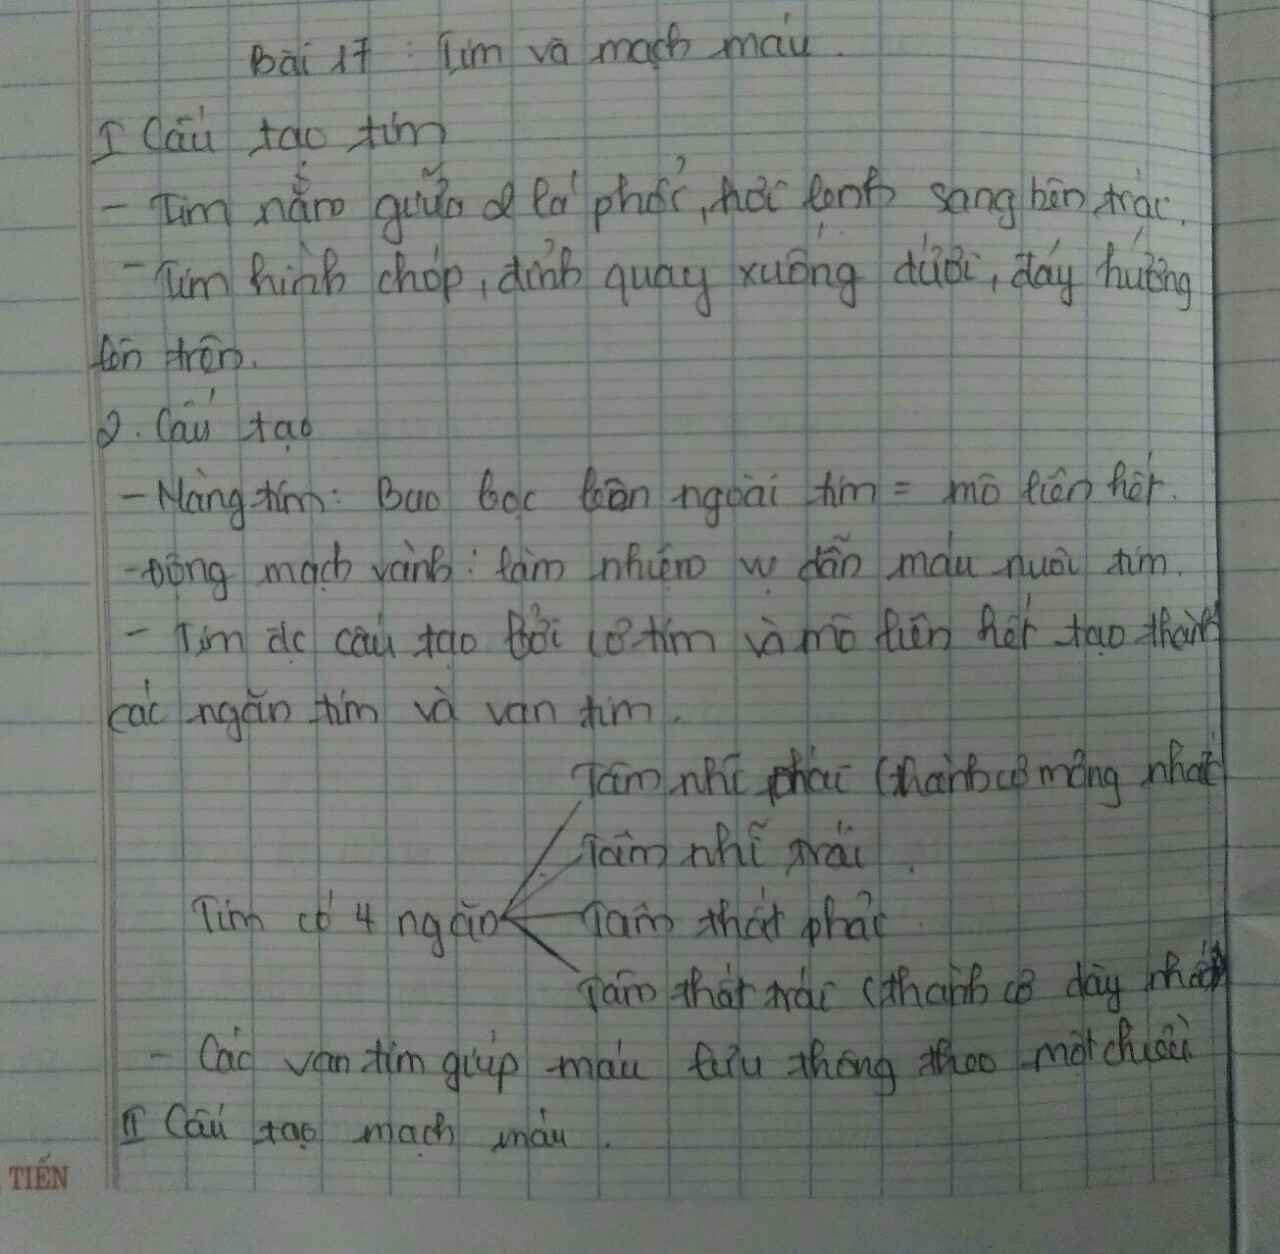 Bài 17 : Tim và mạch máu.
I Cấu tạo tim
- Tim nằm giữa 2 lá phổi, hơi lệnh sang bên trái.
- Tim hình chóp, đỉnh quay xuống dưới, đáy hướng
lên trên.
2. Cấu tạo
- Màng tim: Bao bọc bên ngoài tim = mô liên kết.
- Động mạch vành: làm nhiệm vụ dẫn máu nuôi tim.
- Tim đc cấu tạo bởi cơ tim và mô liên kết tạo thành
các ngăn tim và van tim.
Tâm nhĩ phải (thành cơ mỏng nhất
Tâm nhĩ trái.
Tim có 4 ngăn
Tâm thất phải.
Tâm thất trái (thành cơ dày nhất)
- Các van tim giúp máu lưu thông theo một chiều
II Cấu tạo mạch máu.
TIẾN